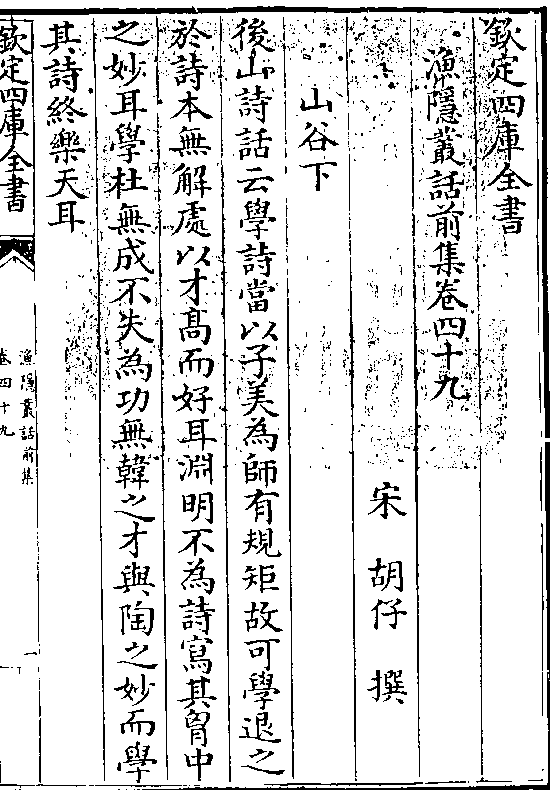 欽定四庫全書
漁隱叢話前集卷四十九
宋 胡仔 撰
山谷下
後山詩話云學詩當以子美為師有規矩故可學退之
於詩本無解處以才髙而好耳淵明不為詩寫其胷中
之妙耳學杜無成不失為功無韓之才與陶之妙而學
其詩終樂天耳
欽定四庫全書
漁隱叢話前集
卷四十九
一